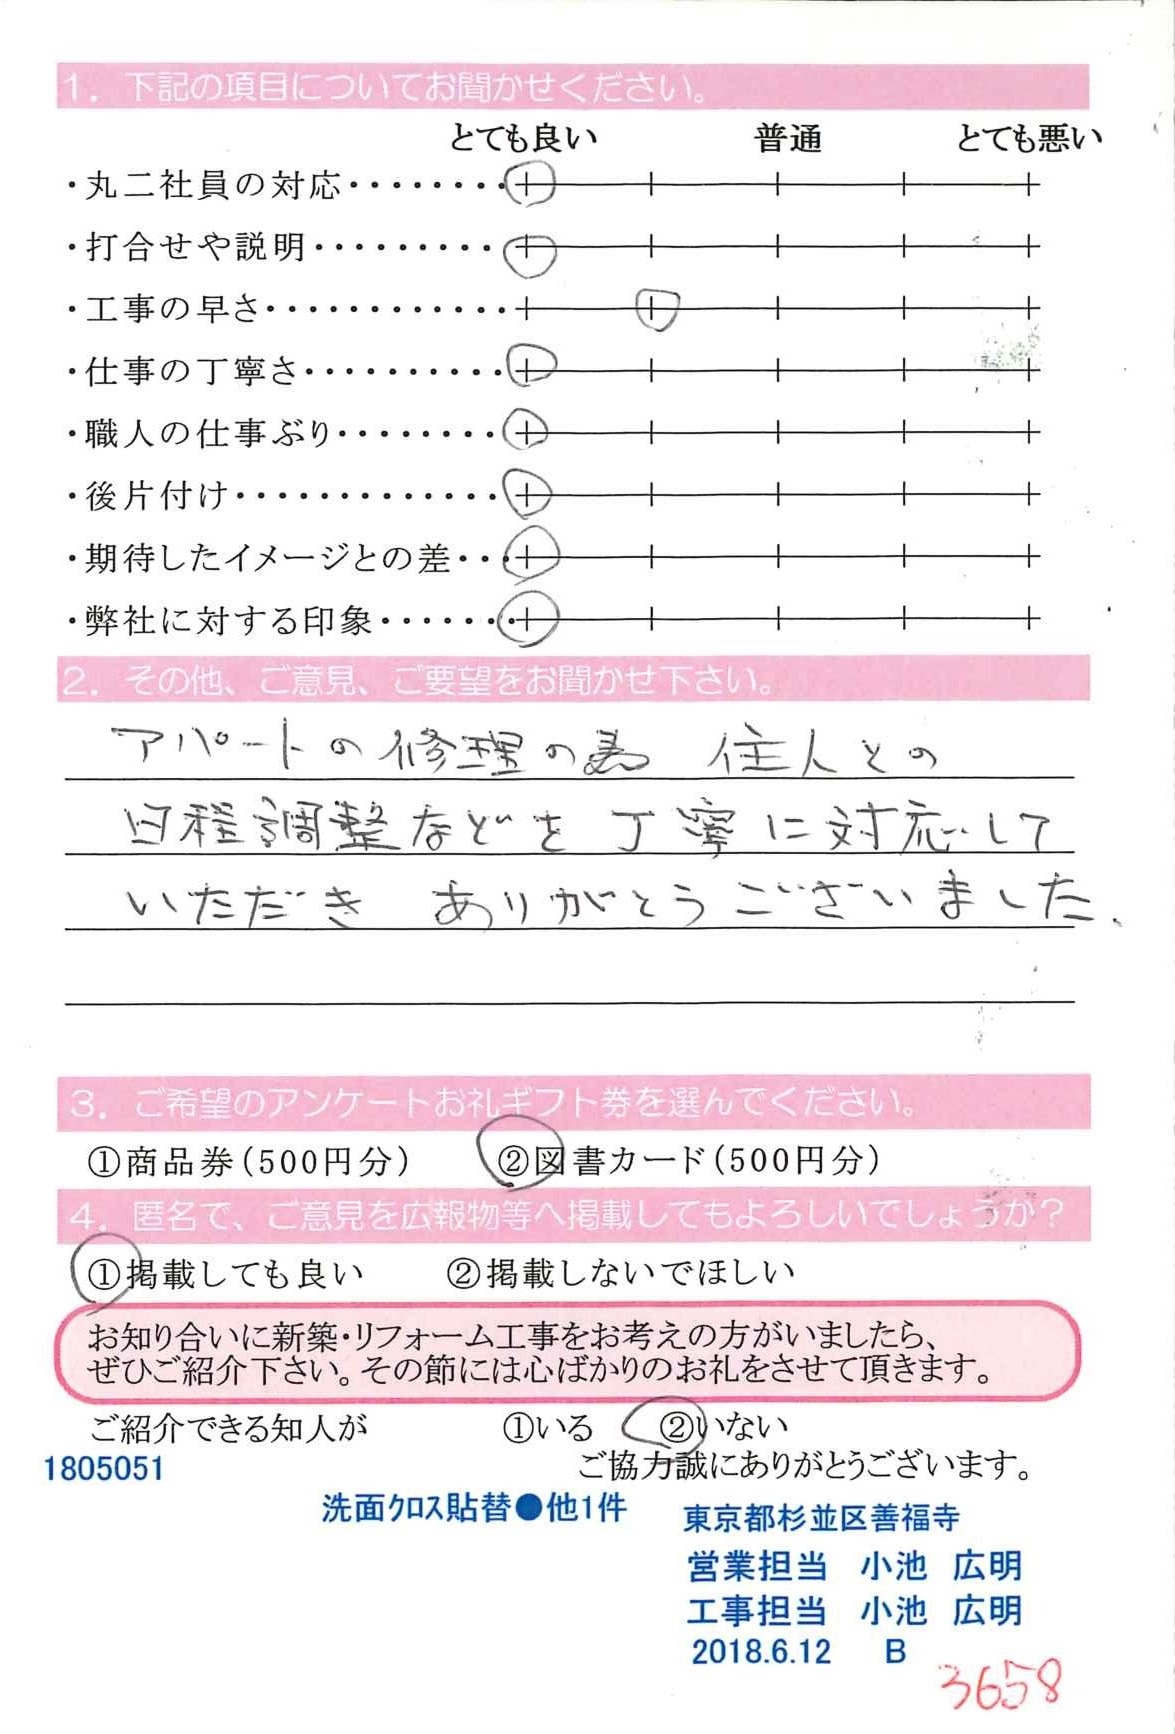 1. 下記の項目についてお聞かせください。
とても良い 普通 とても悪い
・丸二社員の対応・・・・・・・・
・打合せや説明・・・・・・・・・
・工事の早さ・・・・・・・・・・・・
・仕事の丁寧さ・・・・・・・・・・
・職人の仕事ぶり・・・・・・・・
・後片付け・・・・・・・・・・・・・
・期待したイメージとの差・・・
・弊社に対する印象・・・・・・・
2. その他、ご意見、ご要望をお聞かせ下さい。
アパートの修理の為 住人との
日程調整などを丁寧に対応して
いただき ありがとうございました、
3. ご希望のアンケートお礼ギフト券を選んでください。
①商品券(500円分) ②図書カード(500円分)
4. 匿名で、ご意見を広報物等へ掲載してもよろしいでしょうか?
①掲載しても良い ②掲載しないでほしい
お知り合いに新築・リフォーム工事をお考えの方がいましたら、
ぜひご紹介下さい。その節には心ばかりのお礼をさせて頂きます。
ご紹介できる知人が ①いる ②いない
1805051 ご協力誠にありがとうございます。
洗面クロス貼替●他1件 東京都杉並区善福寺
営業担当 小池 広明
工事担当 小池 広明
2018.6.12 B
3658